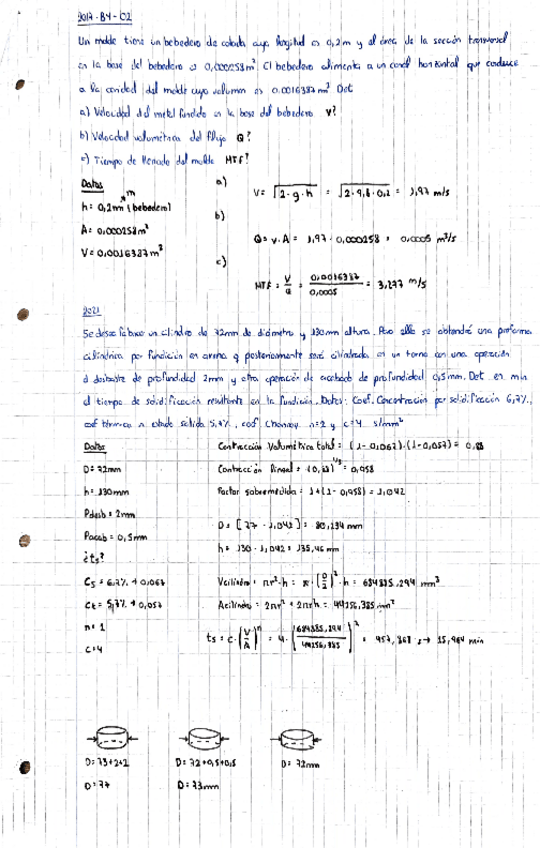 2017-B4-02
Un molde tiene un bebedero de colada cuya longitud es 0,2m y el área de la sección transversal
en la base del bebedero es 0,000258m² El bebedero alimenta a un canal horizontal que conduce
a la cavidad del molde cuyo volumen es 0.0016387m³ Det
a) Velocidad del metal fundido en la base del bebedero V?
b) Velocidad volumétrica del flujo Q?
c) Tiempo de llenado del molde MTF?
Datos
h= 0,2m (bebedero)
m
A= 0,000258m²
V= 0,0016387m³
a) V= √2·g·h = √2·9,8·0,2 = 1,97 m/s
b) Q= v·A = 1,97·0,000258 = 0,0005 m³/s
c) MTF = V/Q = 0,0016387/0,0005 = 3,277 m/s
2021
Se desea fabricar un cilindro de 72mm de diámetro y 130mm altura. Para ello se obtendrá una preforma
cilíndrica por fundición en arena q posteriormente será cilindrada en un torno con una operación
d desbaste de profundidad 2mm y otra operación de acabado de profundidad 0,5mm. Det en min
el tiempo de solidificación resultante en la fundición. Datos: Coef. Concentración por solidificación 6,7%,
coef térmica a estado sólido 5,7%, cof Chorinov n=2 y c=4 s/mm²
Datos
D= 72mm
h= 130mm
Pdesb= 2mm
Pacab= 0,5mm
¿ts?
Cs= 6,7% → 0,067
Ct= 5,7% → 0,057
n= 1
c=4
Contracción Volumétrica total = (1-0,067)·(1-0,057) = 0,88
Contracción lineal = (0,88)^1/3 = 0,958
Factor sobremedida = 1+(1-0,958) = 1,042
D= [77 · 1,042] = 80,234 mm
h= 130 · 1,042 = 135,46 mm
Vcilindro = πr²·h = π·(D/2)²·h = 684885,294 mm³
Acilindro = 2πr² + 2πrh = 44256,385 mm²
ts = c·(V/A)ⁿ = 4·[684885,294/44256,385]² = 957,868 s → 15,964 min
D= 73+2+2
D= 77
D= 72+0,5+0,5
D= 73mm
D= 72mm